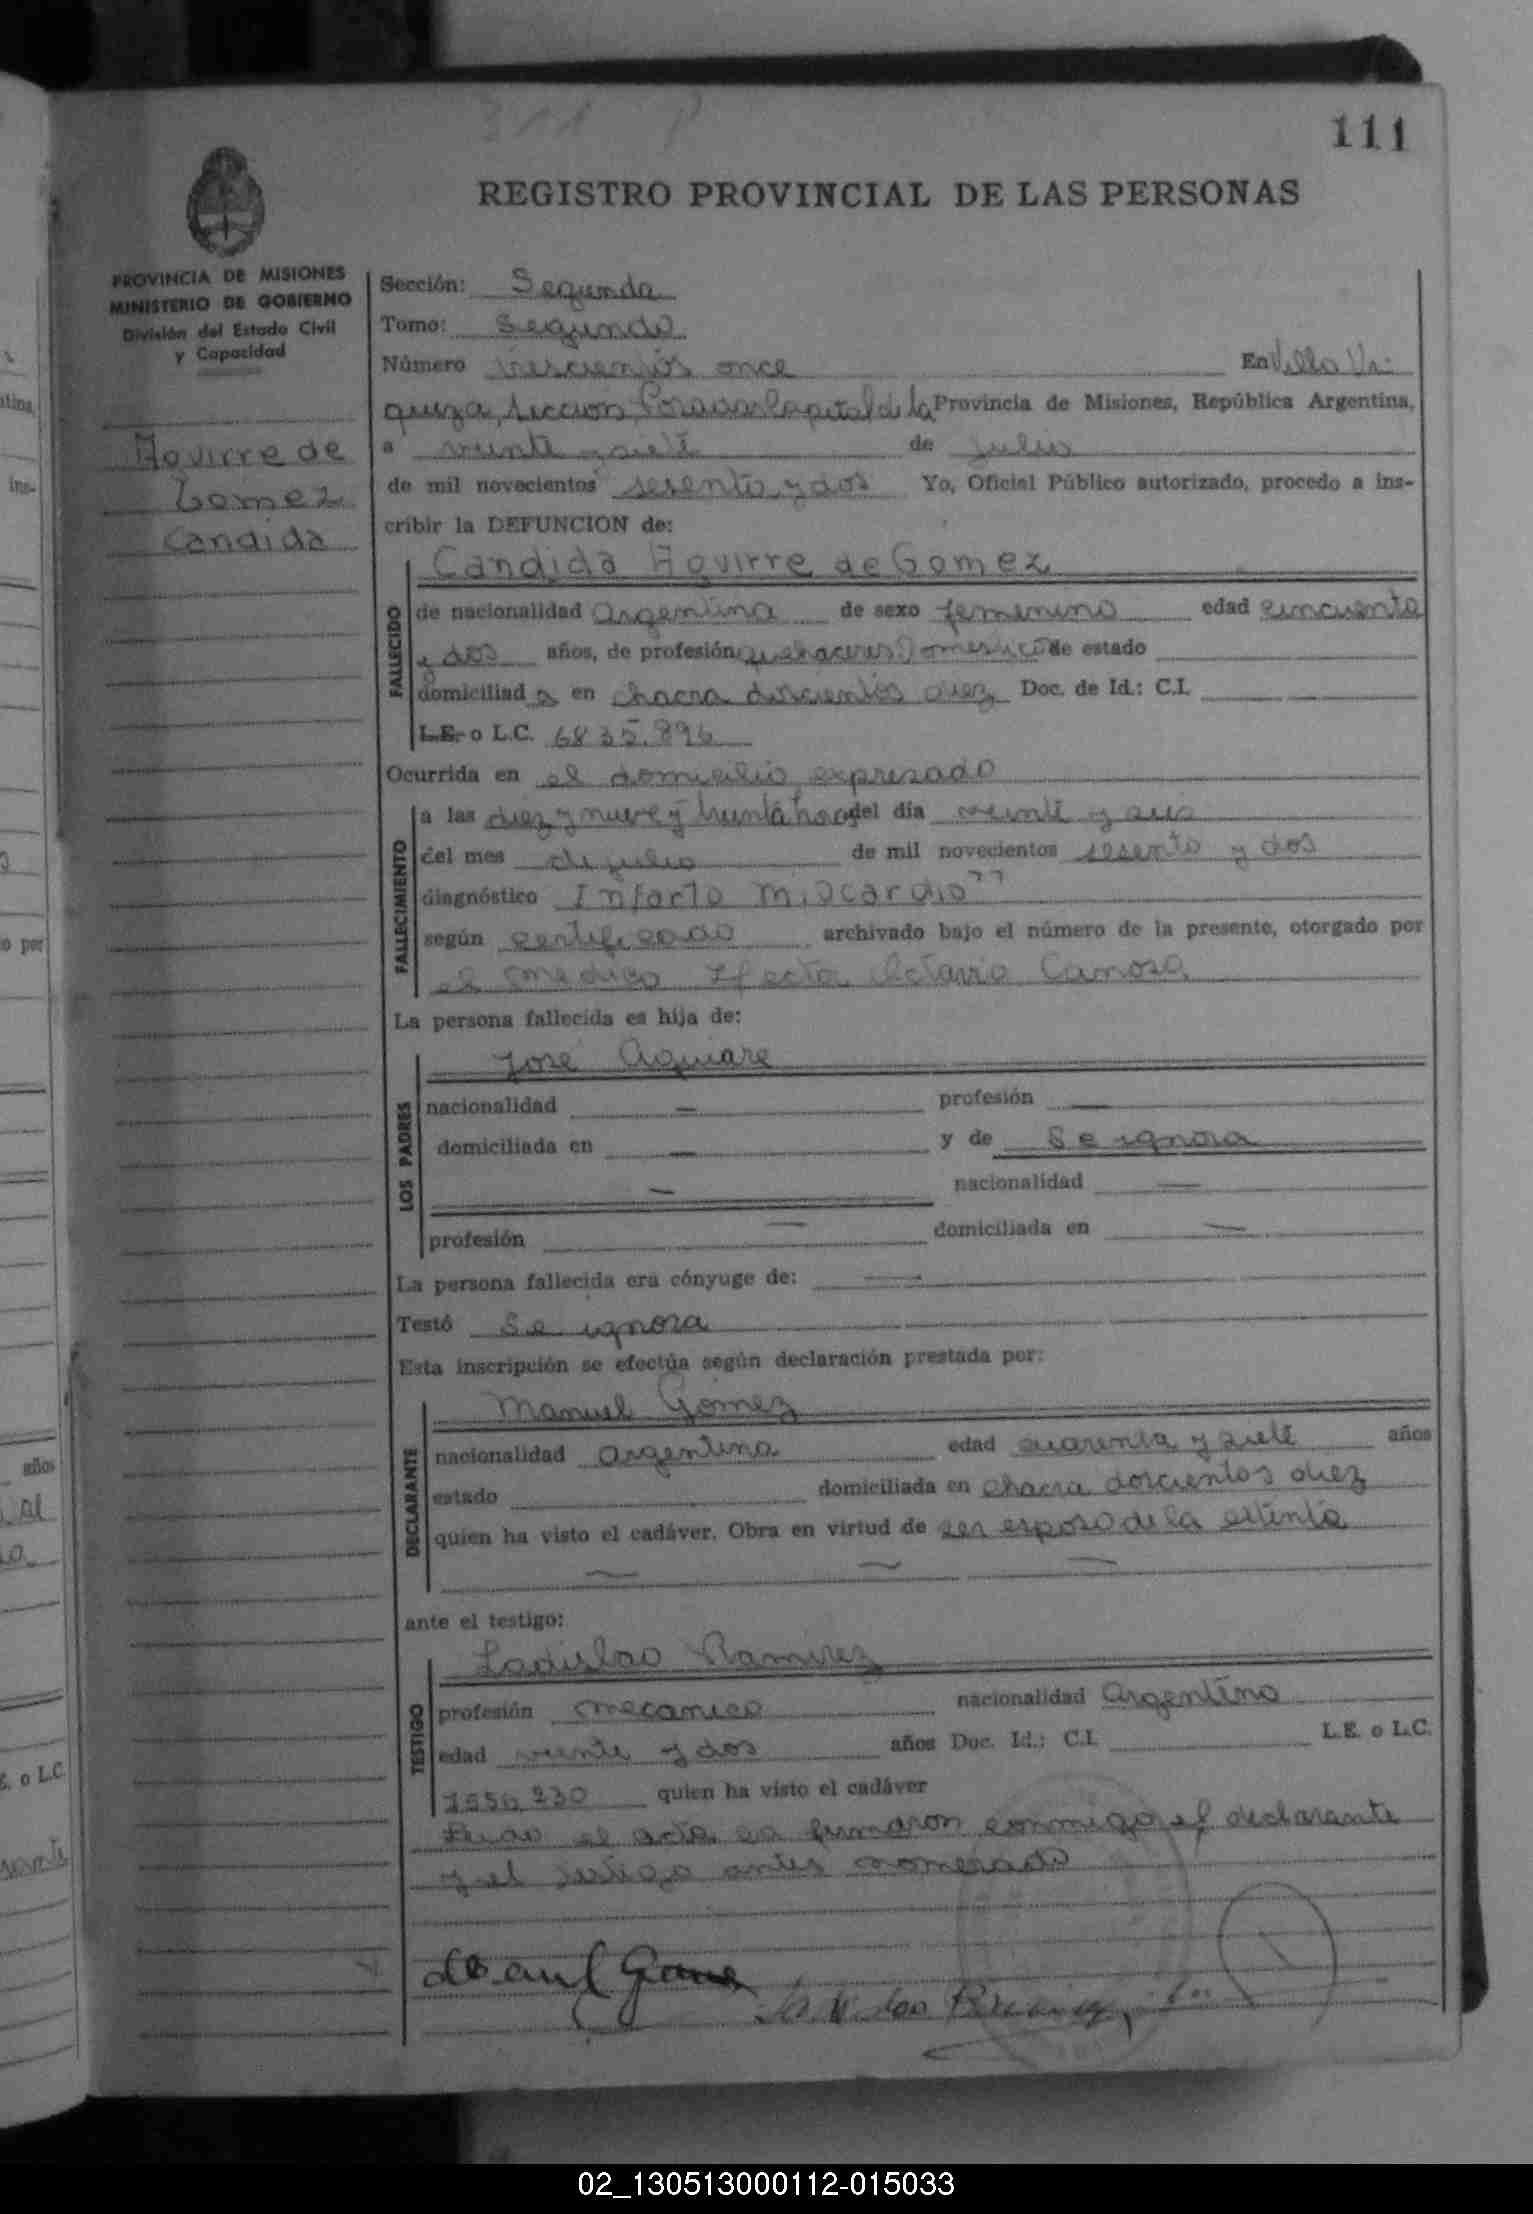 111
REGISTRO PROVINCIAL DE LAS PERSONAS
PROVINCIA DE MISIONES
MINISTERIO DE GOBIERNO
División del Estado Civil
y Capacidad
Aguirre de
Gomez
Candida
Sección: Segunda
Tomo: Segundo
Número trescientos once En Villa Ur-
quiza, Seccion Posadas Capital de la Provincia de Misiones, República Argentina,
a veinte y siete de julio
de mil novecientos sesenta y dos Yo, Oficial Público autorizado, procedo a ins-
cribir la DEFUNCION de:
Candida Aguirre de Gomez
FALLECIDO
de nacionalidad Argentina de sexo femenino edad cincuenta
y dos años, de profesión quehaceres Domestico de estado
domiciliad a en chacra doscientos diez Doc. de Id.: C.I.
L.E. o L.C. 6835.896
Ocurrida en el domicilio expresado
FALLECIMIENTO
a las diez y nueve y treinta horas del día veinte y seis
del mes de julio de mil novecientos sesenta y dos
diagnóstico Infarto Miocardio"
según certificado archivado bajo el número de la presente, otorgado por
el medico Hector Octavio Canosa
La persona fallecida es hija de:
LOS PADRES
José Aguiare
nacionalidad — profesión —
domiciliada en — y de Se ignora
— nacionalidad —
profesión — domiciliada en —
La persona fallecida era cónyuge de: —
Testó Se ignora
Esta inscripción se efectúa según declaración prestada por:
DECLARANTE
Manuel Gomez
nacionalidad argentina edad cuarenta y siete años
estado domiciliada en chacra doscientos diez
quien ha visto el cadáver. Obra en virtud de ser esposo de la extinta
— — —
ante el testigo:
TESTIGO
Ladislao Ramirez
profesión mecanico nacionalidad Argentino
edad veinte y dos años Doc. Id.: C.I. L.E. o L.C.
7556.230 quien ha visto el cadáver
Leido el acta la firmaron conmigo el declarante
y el testigo antes nomerado
02_130513000112-015033